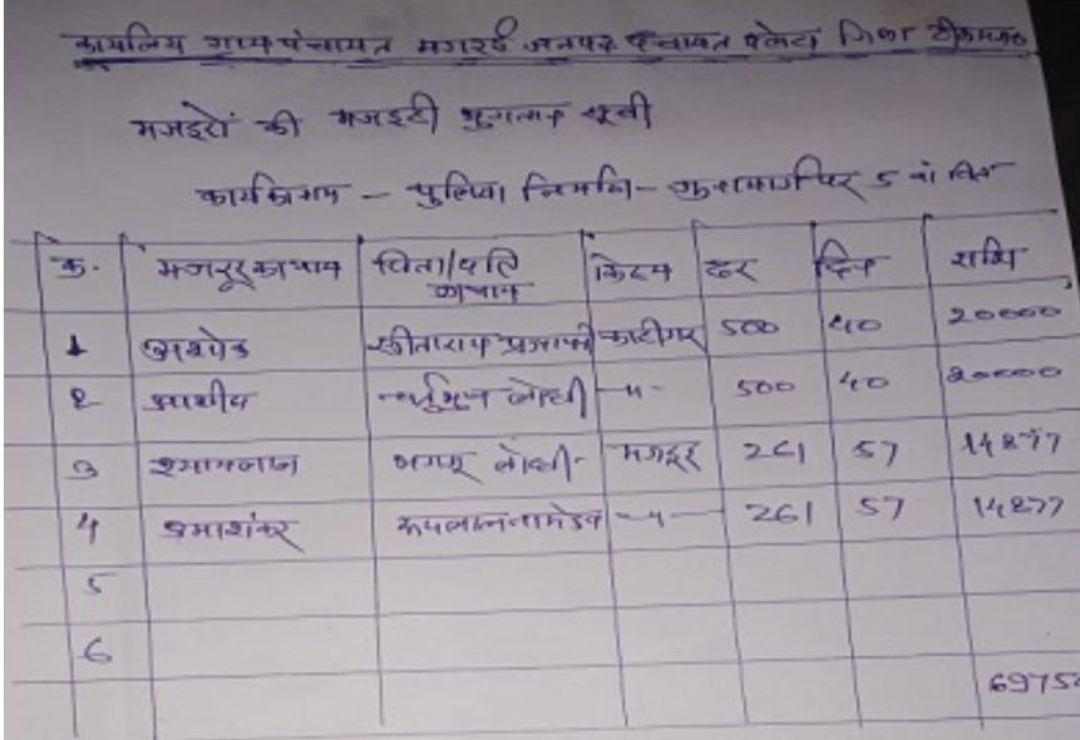 कार्यालय ग्राम पंचायत मगरई जनपद पंचायत पलेरा जिला टीकमगढ
मजदूरों की मजदूरी भुगतान सूची
कार्य का नाम - पुलिया निर्माण - 5 वां वित्त
क्र. मजदूर का नाम पिता/पति का नाम किस्म दर दिन राशि
1 अशोक सीताराम प्रजापति कारीगर 500 40 20000
2 आशीष लोधी -"- 500 40 20000
3 श्यामलाल लोधी - मजदूर 261 57 14877
4 रूपलाल नामदेव -"- 261 57 14877
5
6
6975